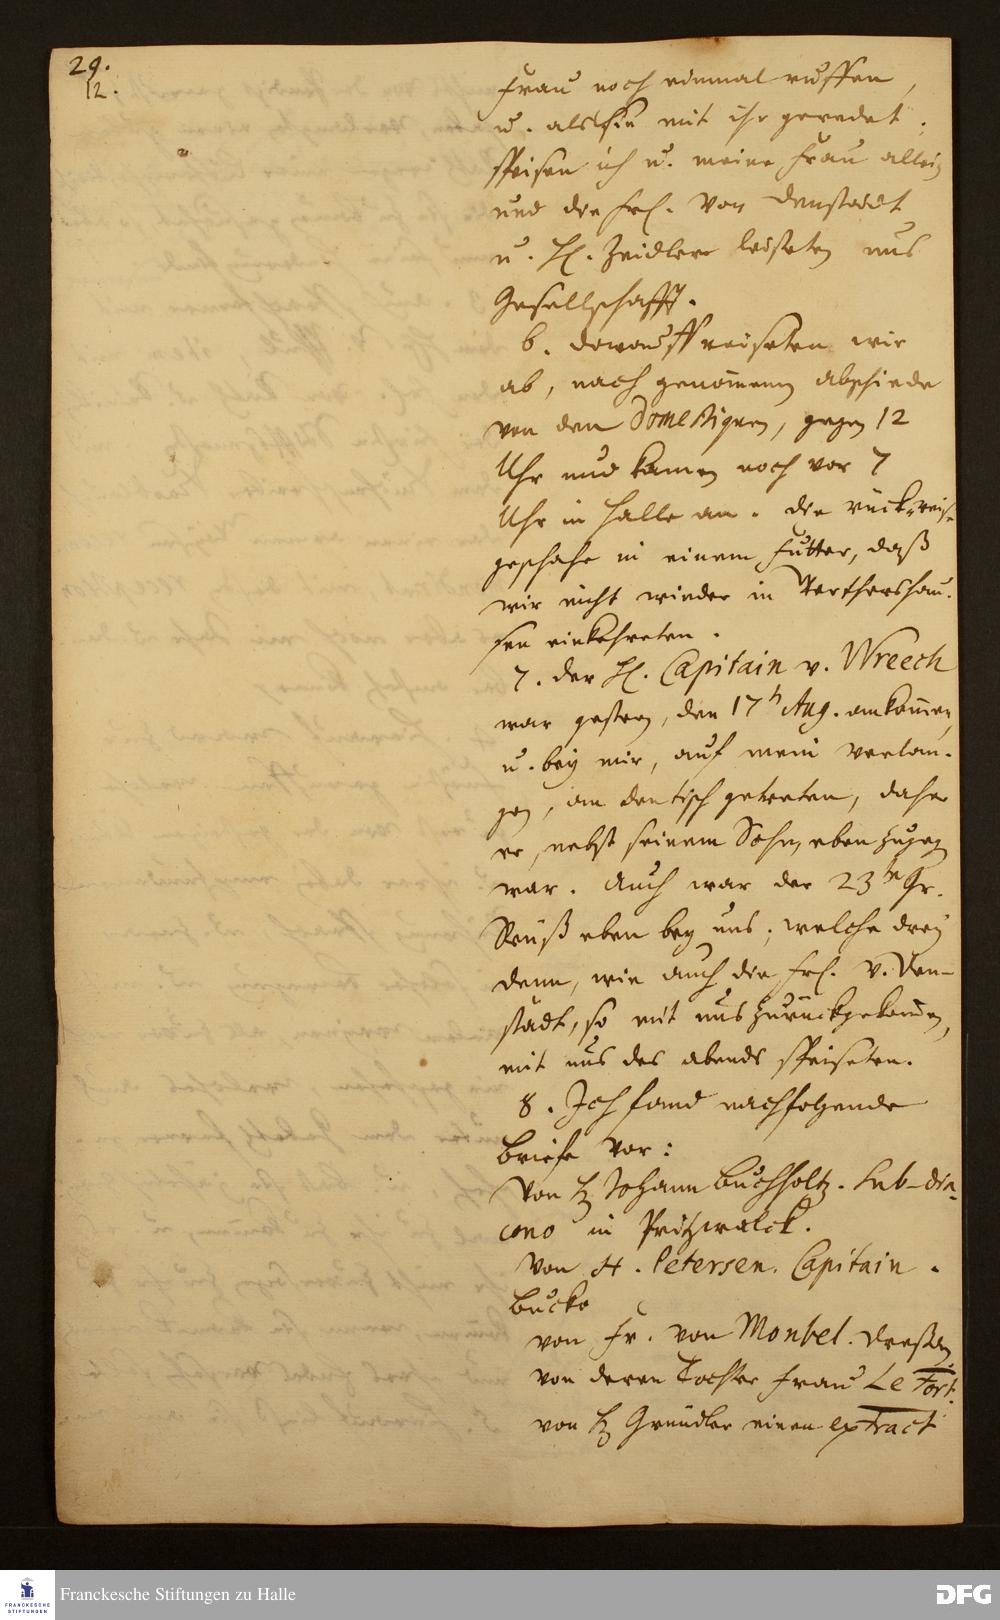 29.
12.
Frau noch einmal ruffen,
u. als sie mit ihr geredet,
speisen ich u. meine Frau allein
und die Frl. von Denstedt
u. H. Zeidler leisteten uns
Gesellschafft.
6. darauff reiseten wir
ab, nach genommenem abschiede
von den Domestiquen, gegen 12
Uhr und kamen noch vor 7
Uhr in Halle an. die rückreise
geschahe in einem Futter, daß
wir nicht wieder in Werthershau-
sen einkehreten.
7. der H. Capitain v. Wreech
war gestern, den 17t Aug. ankommen,
u. bey mir, auf mein verlan-
gen, an den tisch getreten, daher
er, nebst seinem Sohn, eben zugegen
war. Auch war der 23te Gr.
Reuß eben bey uns; welche drey
denn, wie auch die Frl. v. Den-
städt, so mit uns zurückgekommen,
mit uns des abends speiseten.
8. Ich fand nachfolgende
briefe vor:
Von H. Johann Buchholtz. Sub-dia-
cono in Pritzwalck.
Von H. Petersen. Capitain.
Bücke
von Fr. von Monbel. Dresden
von deren Tochter Frau Le Fort.
von H. Gründler einen extract
Franckesche Stiftungen zu Halle
FRANCKESCHE
STIFTUNGEN
DFG